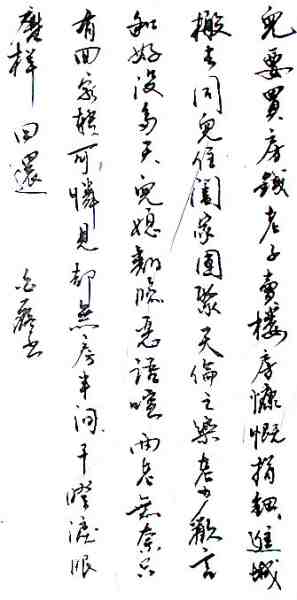 兒要買房錢老子賣樓房慷慨捐進城
搬去同兒住闔家團聚天倫之樂老少歡言
和好沒多天兒媳翻臉惡語喧兩老無奈只
有回家轉可憐見却無房半间干瞪淚眼
样回還